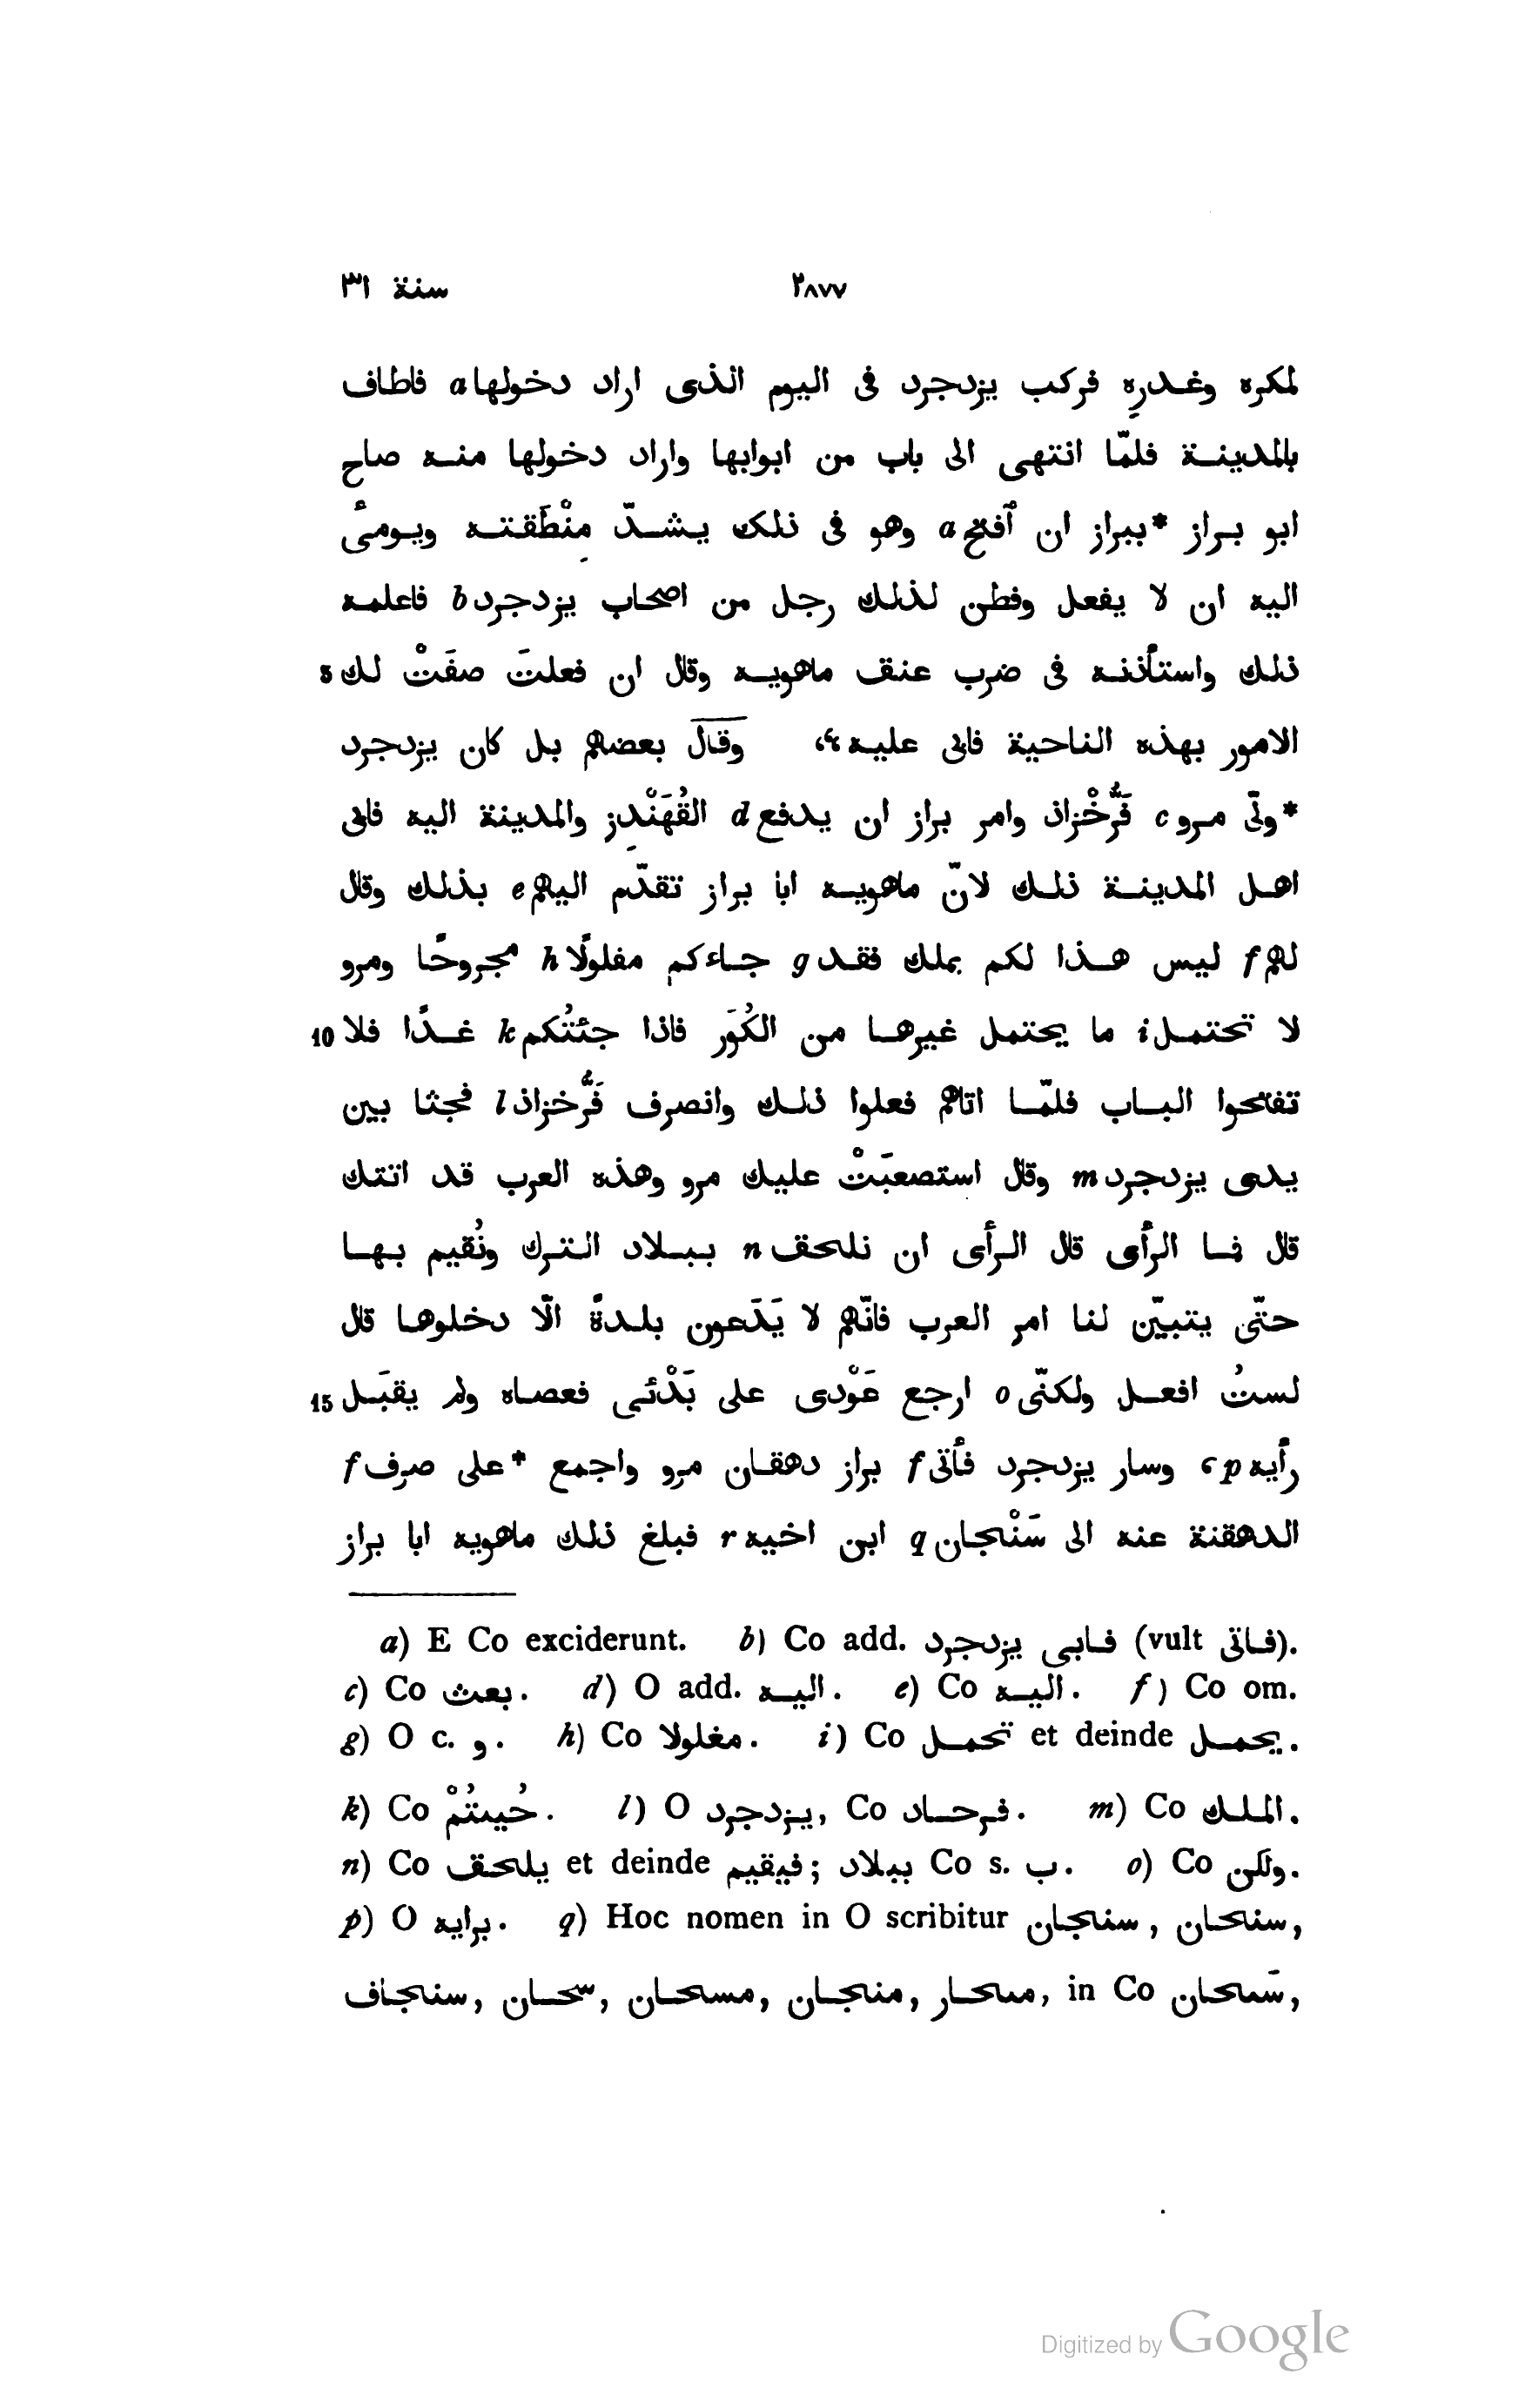 سنة ٣١ ٢٨٧٧
لمكره وغدره فركب يزدجرد فى اليوم الذى اراد دخولها a فاطاف
بالمدينة فلمّا انتهى الى باب من ابوابها واراد دخولها منه صاح
ابو براز *ببراز ان آفتح a وهو فى ذلك يشدّ مِنْطَقته ويومئ
اليه ان لا يفعل وفطن لذلك رجل من اصحاب يزدجرد b فاعلمه
ذلك واستأذنه فى ضرب عنق ماهويه وقال ان فعلتَ صفَتْ لك 5
الامور بهذه الناحية فابى عليه، وقال بعضهم بل كان يزدجرد
*ولّى مرو c فَرُّخْزاذ وامر براز ان يدفع d القُهَنْدِز والمدينة اليه فابى
اهل المدينة ذلك لانّ ماهويه ابا براز تقدّم اليهم e بذلك وقال
لهم f ليس هذا لكم بملك فقد g جاءكم مفلولًا h مجروحًا ومرو
لا تحتمل i ما يحتمل غيرها من الكُوَر فاذا جئتُكم k غدًا فلا 10
تفتحوا الباب فلمّا اتاهم فعلوا ذلك وانصرف فَرُّخزاذ l فجثا بين
يدى يزدجرد m وقال استصعبَتْ عليك مرو وهذه العرب قد اتتك
قال فما الرأى قال الرأى ان نلحق n ببلاد الترك ونُقيم بها
حتّى يتبيّن لنا امر العرب فانّهم لا يَدَعون بلدةً الّا دخلوها قال
لستُ افعل ولكنّى o ارجع عَوْدى على بَدْئى فعصاه ولم يقبَل 15
رأيه p، وسار يزدجرد فأتى f براز دهقان مرو واجمع *على صرف f
الدهقنة عنه الى سَنْجان q ابن اخيه r فبلغ ذلك ماهويه ابا براز
a) E Co exciderunt. b) Co add. فابى يزدجرد (vult فاتى).
c) Co بعث. d) O add. اليه. e) Co اليه. f) Co om.
g) O c. و. h) Co مغلولا. i) Co تحمل et deinde يحمل.
k) Co حُيىتُمْ. l) O يزدجرد, Co فرحاد. m) Co الملك.
n) Co يلحق et deinde فيقيم; ببلاد Co s. ب. o) Co ولكن.
p) O برايه. q) Hoc nomen in O scribitur سنجان, سنحان,
سَمحان in Co, محار, منجان, مسحان, سحان, سنجاف
Digitized by Google